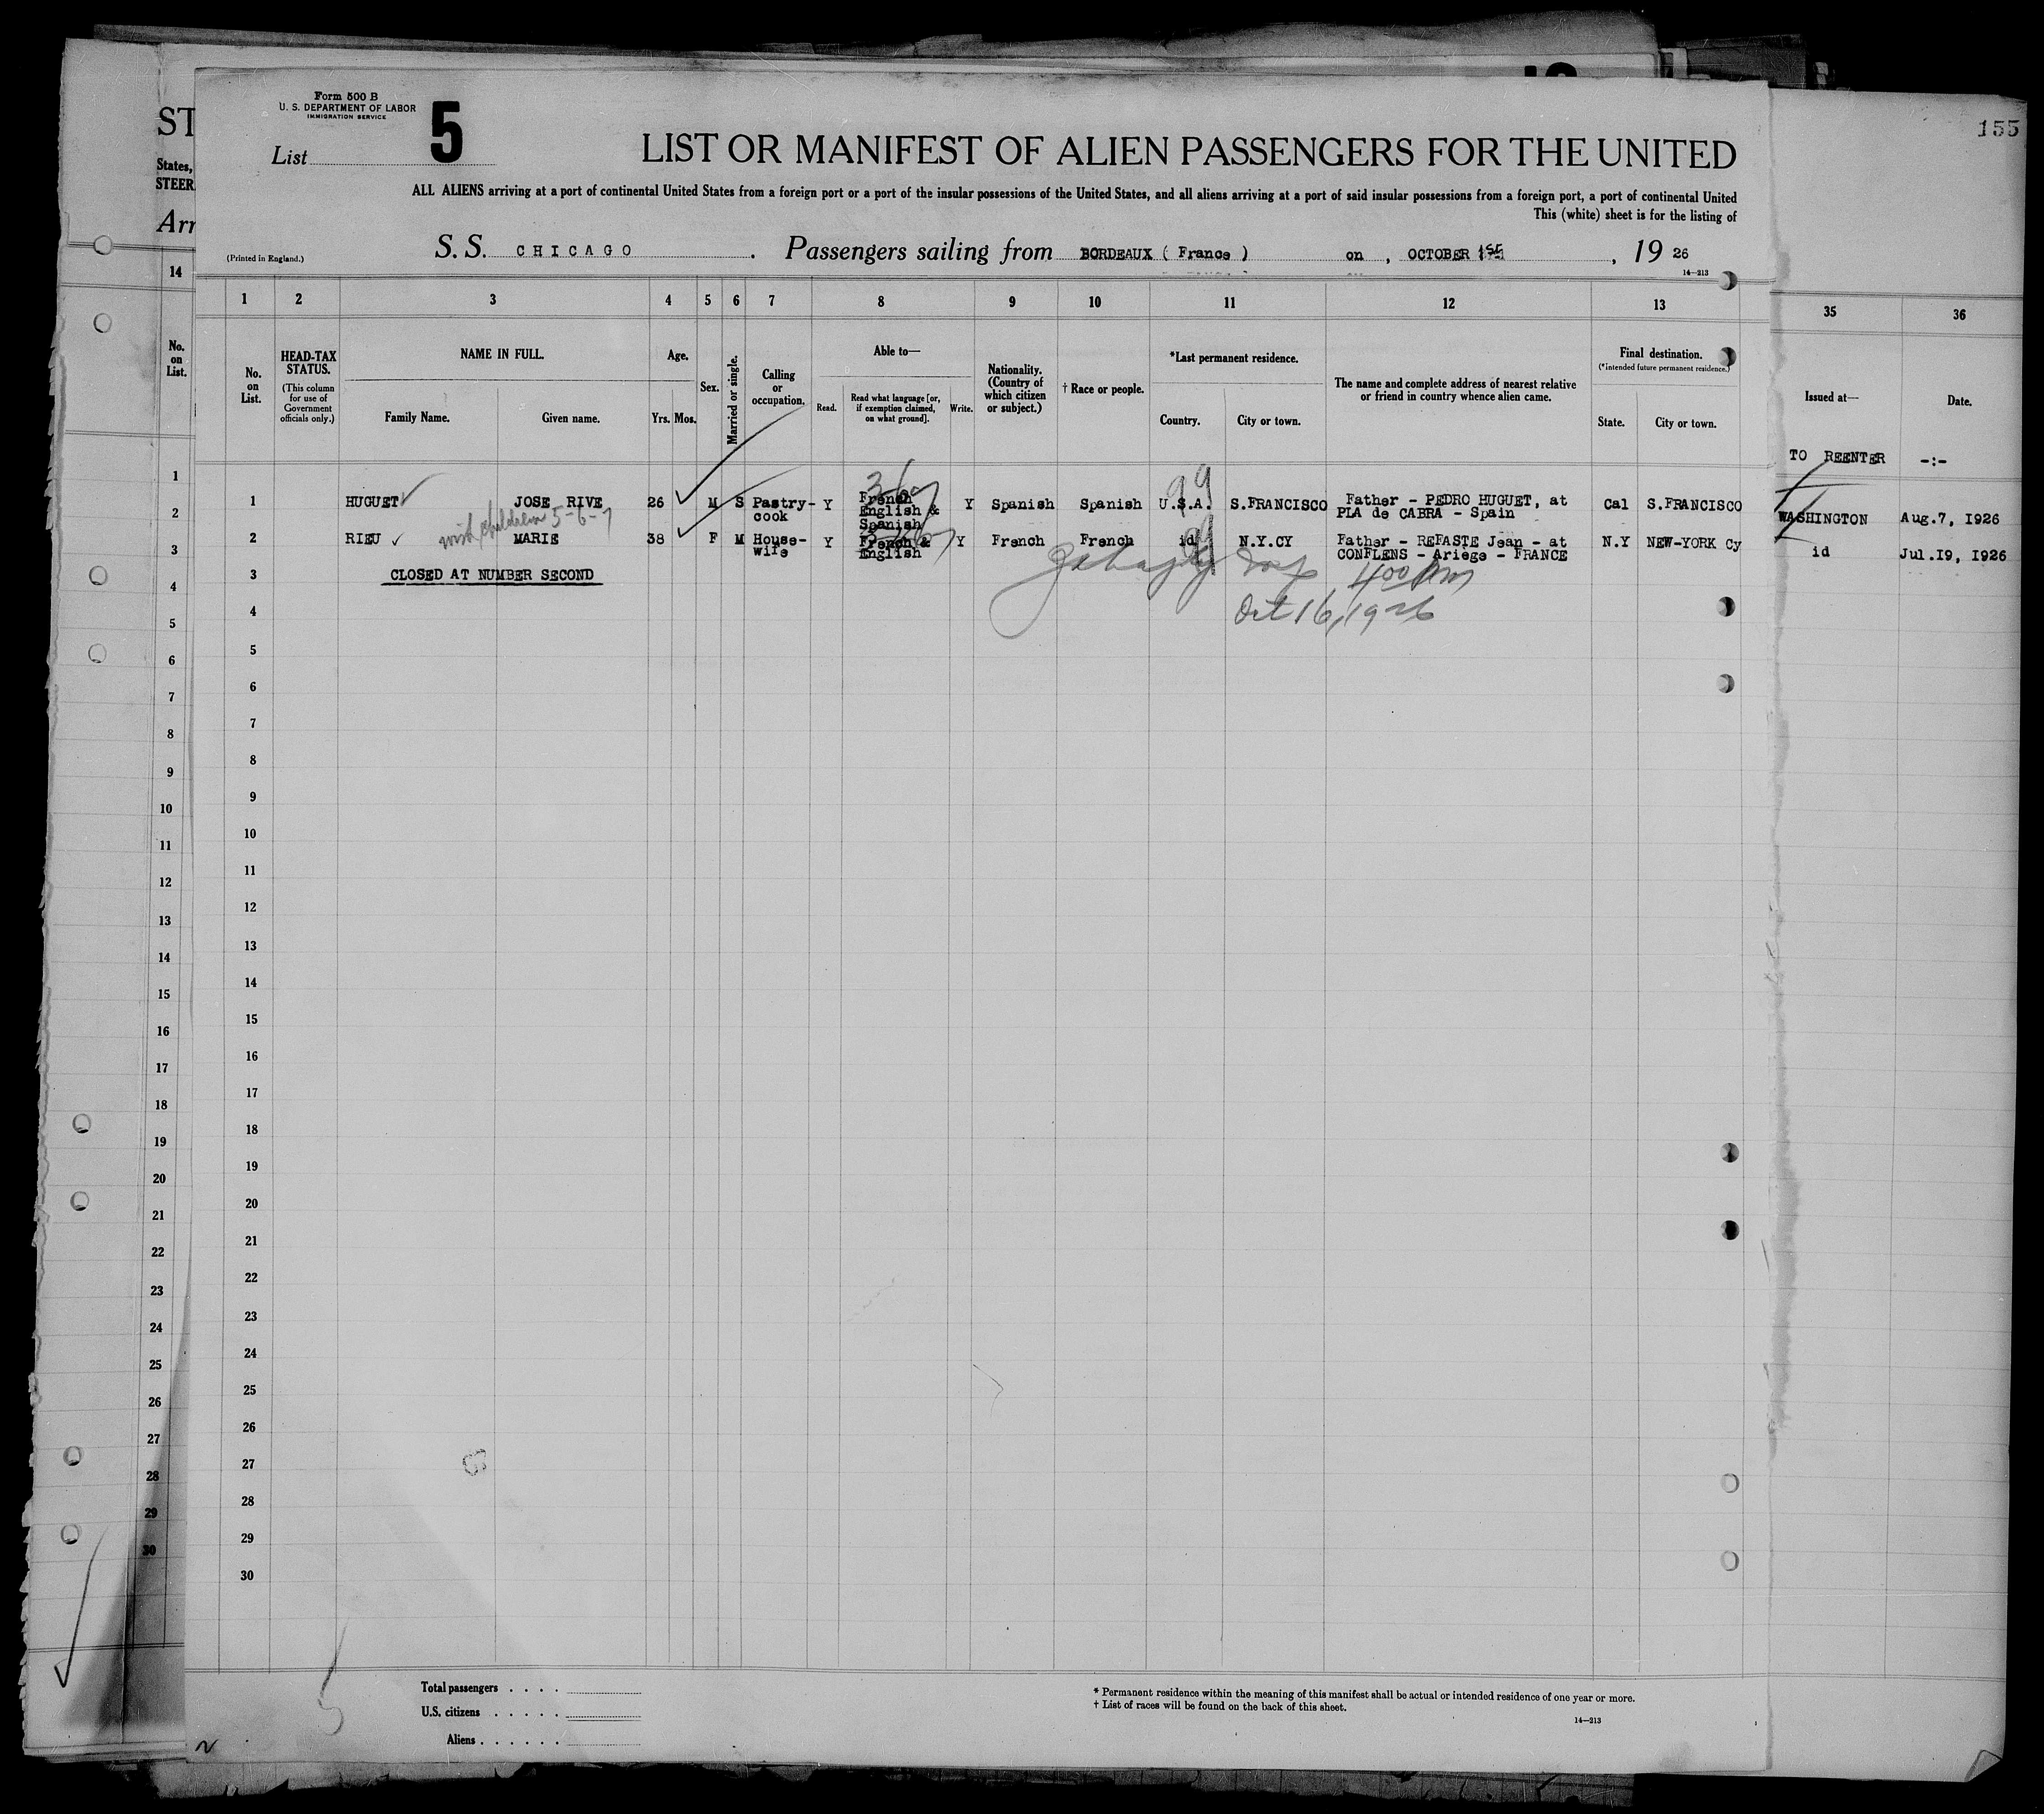 Form 500 B
U. S. DEPARTMENT OF LABOR
IMMIGRATION SERVICE
List 5
LIST OR MANIFEST OF ALIEN PASSENGERS FOR THE UNITED
ALL ALIENS arriving at a port of continental United States from a foreign port or a port of the insular possessions of the United States, and all aliens arriving at a port of said insular possessions from a foreign port, a port of continental United
This (white) sheet is for the listing of
(Printed in England.)
S.S. CHICAGO. Passengers sailing from BORDEAUX ( France ) on , OCTOBER 1st , 19 26
14—213
1 2 3 4 5 6 7 8 9 10 11 12 13
No. on List.
HEAD-TAX STATUS.
(This column for use of Government officials only.)
NAME IN FULL.
Family Name. Given name.
Age.
Yrs. Mos.
Sex.
Married or single.
Calling or occupation.
Able to—
Read. Read what language [or, if exemption claimed, on what ground]. Write.
Nationality. (Country of which citizen or subject.)
† Race or people.
*Last permanent residence.
Country. City or town.
The name and complete address of nearest relative or friend in country whence alien came.
Final destination.
(*intended future permanent residence.)
State. City or town.
1 HUGUET JOSE RIVE 26 M S Pastry-cook Y French English & Spanish Y Spanish Spanish U.S.A. S.FRANCISCO Father - PEDRO HUGUET, at PLA de CABRA - Spain Cal S.FRANCISCO
with children 5-6-7
99
2 RIEU MARIE 38 F M House-wife Y French & English Y French French id N.Y.CY Father - REFASTE Jean - at CONFLENS - Ariège - FRANCE N.Y NEW-YORK Cy
99
3 CLOSED AT NUMBER SECOND
400 pm
Oct 16, 1926
4
5
6
7
8
9
10
11
12
13
14
15
16
17
18
19
20
21
22
23
24
25
26
27
28
29
30
Total passengers . . . .
U.S. citizens . . . . .
Aliens . . . . . .
* Permanent residence within the meaning of this manifest shall be actual or intended residence of one year or more.
† List of races will be found on the back of this sheet.
14—213
5
ST
States,
STEER
Arr
14
No. on List.
1
2
3
4
5
6
7
8
9
10
11
12
13
14
15
16
17
18
19
20
21
22
23
24
25
26
27
28
29
30
155
35 36
Issued at— Date.
TO REENTER -:-
WASHINGTON Aug.7, 1926
id Jul.19, 1926